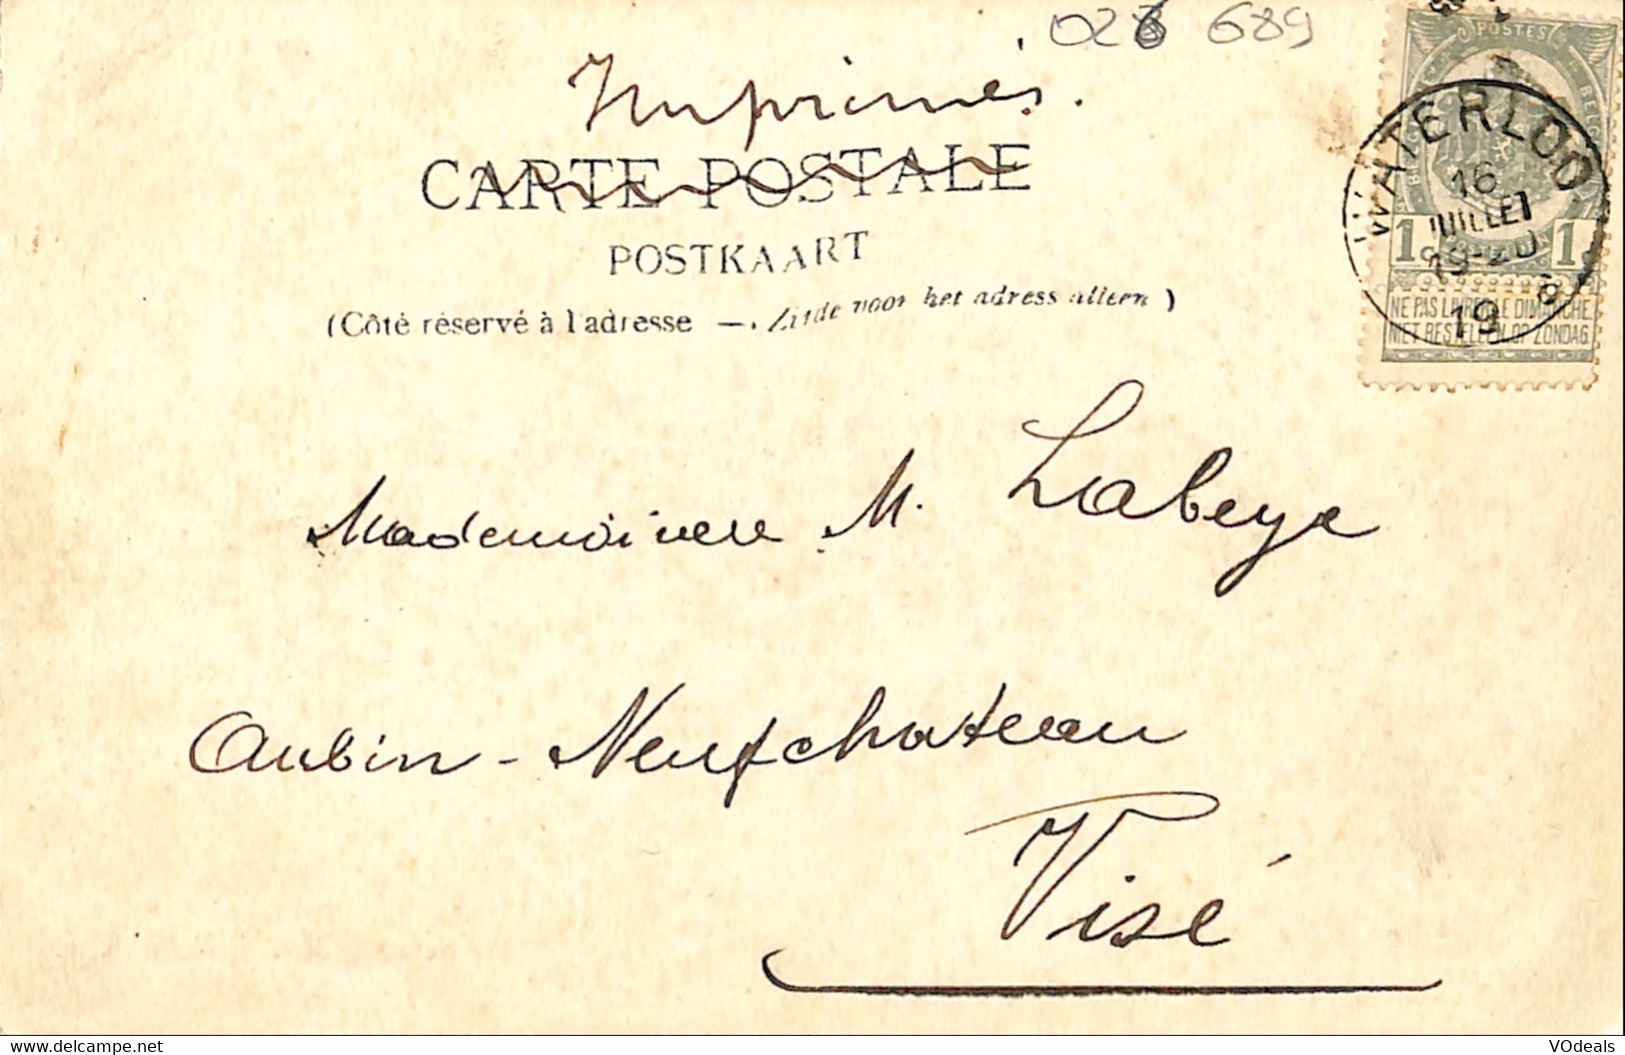 028 689
Imprimés.
CARTE POSTALE
POSTKAART
(Côté réservé à l'adresse — Zijde voor het adress alleen)
POSTES
WATERLOO
16
JUILLET
19-20
19
1 1
NE PAS LIVRER LE DIMANCHE
NIET BESTELLEN OP ZONDAG
Mademoiselle M. Labeye
Aubin-Neufchateau
Visé
www.delcampe.net
VOdeals